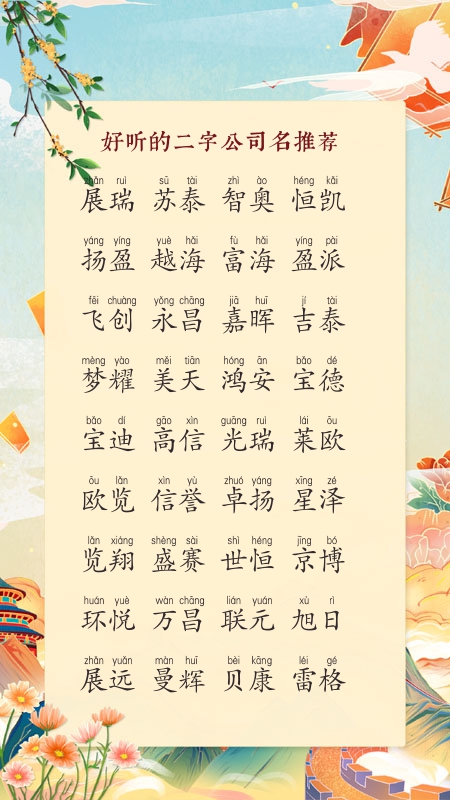 好听的二字公司名推荐
zhǎn ruì sū tài zhì ào héng kǎi
展瑞 苏泰 智奥 恒凯
yáng yíng yuè hǎi fù hǎi yíng pài
扬盈 越海 富海 盈派
fēi chuàng yǒng chāng jiā huī jí tài
飞创 永昌 嘉晖 吉泰
mèng yào měi tiān hóng ān bǎo dé
梦耀 美天 鸿安 宝德
bǎo dí gāo xìn guāng ruì lái ōu
宝迪 高信 光瑞 莱欧
ōu lǎn xìn yù zhuó yáng xīng zé
欧览 信誉 卓扬 星泽
lǎn xiáng shèng sài shì héng jīng bó
览翔 盛赛 世恒 京博
huán yuè wàn chāng lián yuán xù rì
环悦 万昌 联元 旭日
zhǎn yuǎn màn huī bèi kāng léi gé
展远 曼辉 贝康 雷格